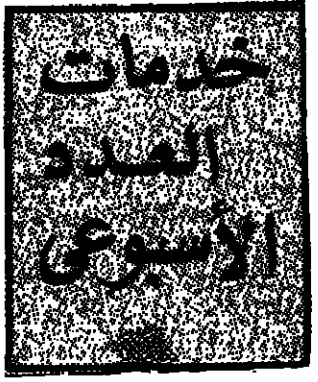 خدمات
العدد
الأسبوعى